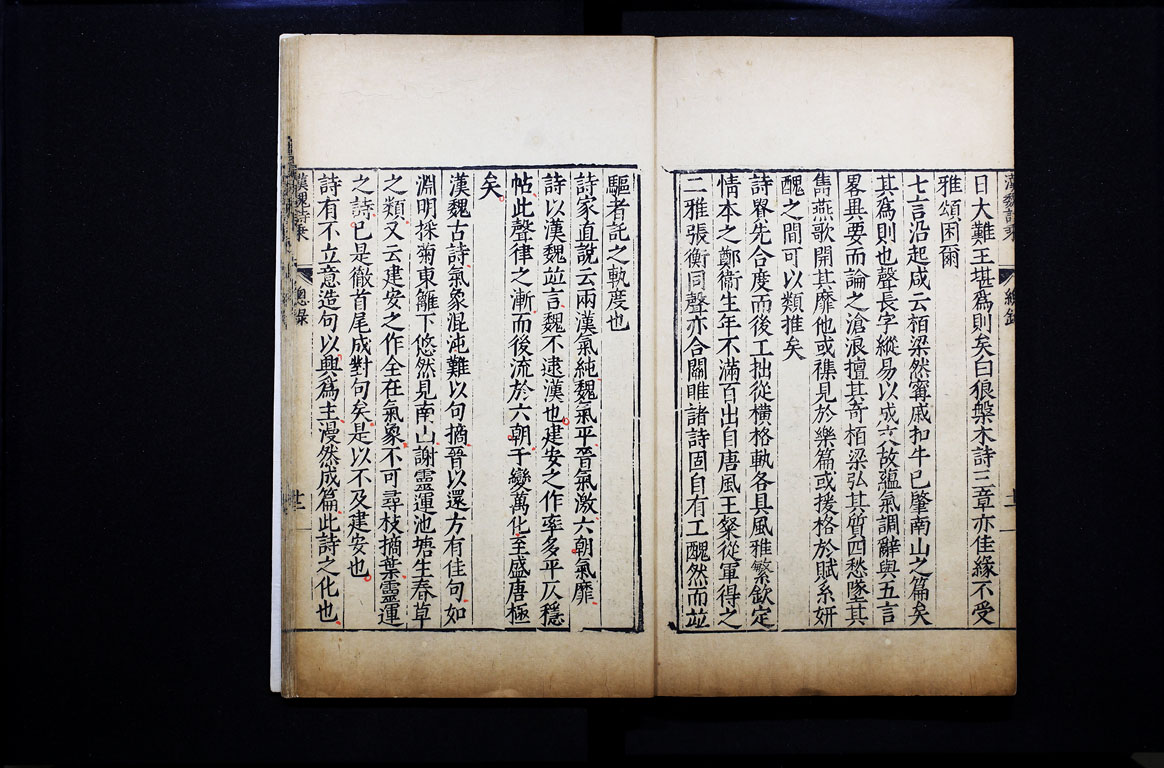 漢魏詩乘 總錄
日大難王堪爲則矣曰狼槃木詩三章亦佳緣不受
雅頌困爾
七言沿起咸云栢梁然寗戚扣牛已肇南山之篇矣
其爲則也聲長字縱易以成文故蘊氣調辭與五言
畧異要而論之滄浪擅其奇栢梁弘其質四愁墜其
雋燕歌開其靡他或襍見於樂篇或援格於賦系妍
醜之間可以類推矣
詩貴先合度而後工拙從橫格軌各具風雅繁欽定
情本之鄭衞生年不滿百出自唐風王粲從軍得之
二雅張衡同聲亦合關雎諸詩固自有工醜然而並
驅者託之軌度也
詩家直說云兩漢氣純魏氣平晉氣激六朝氣靡
詩以漢魏竝言魏不逮漢也建安之作率多平仄穩
帖此聲律之漸而後流於六朝千變萬化至盛唐極
矣
漢魏古詩氣象混沌難以句摘晉以還方有佳句如
淵明採菊東籬下悠然見南山謝靈運池塘生春草
之類又云建安之作全在氣象不可尋枝摘葉靈運
之詩已是徹首尾成對句矣是以不及建安也
詩有不立意造句以興爲主漫然成篇此詩之化也
漢魏詩乘 總錄 廿